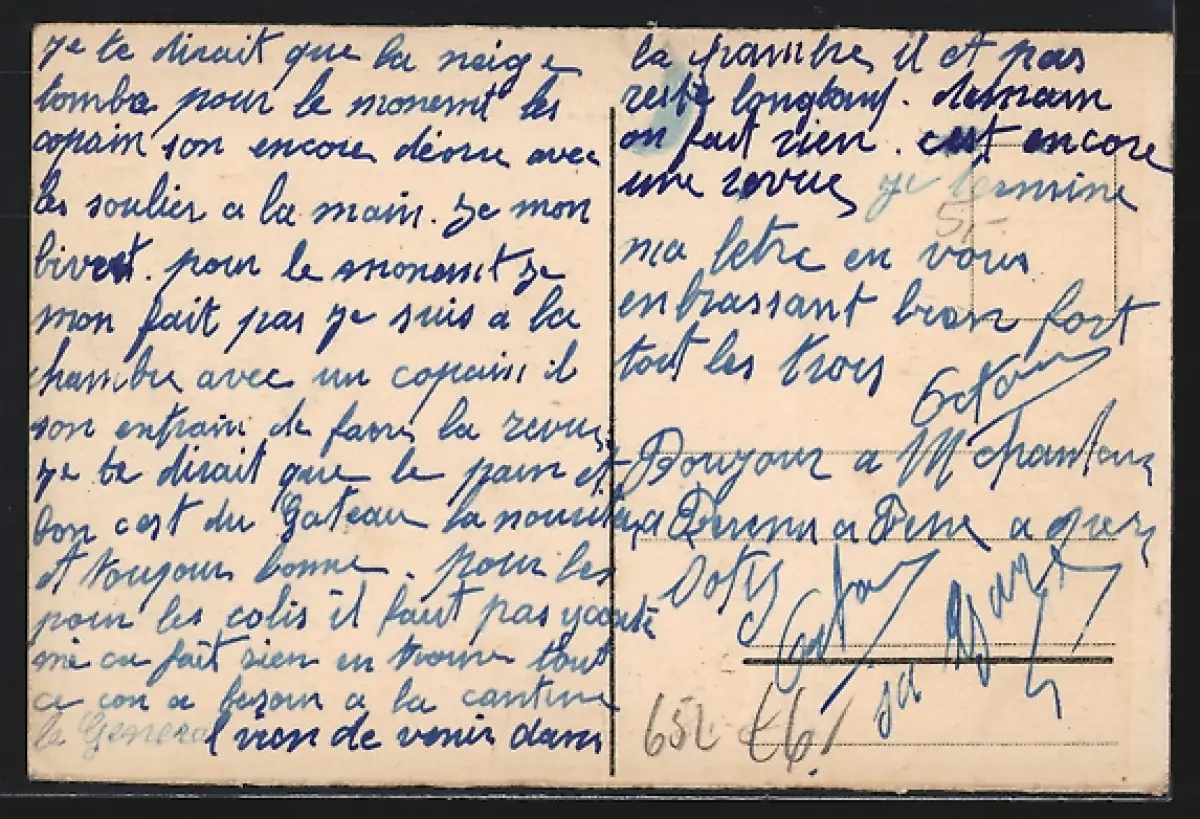 je te dirait que la neige
tombe pour le moment les
copain son encore déore avec
les soulier a la main. je mon
pour le moment je
mon fait pas je suis a la
chambre avec un copain il
son entrain de faire la revue,
je te dirait que le pain et
bon cest du Gateau la nouritu
et toujour bonne. pour les
pour les colis il faut pas
ca fait rien en trouve tout
ce con a besoin a la cantine
le General vien de venir dans
la chambre il et pas
reste longtemp. demain
on fait rien. cest encore
une revue je termine
51-
ma letre en vous
enbrassant bien fort
tout les trois
Bonjour a M
a a a
652